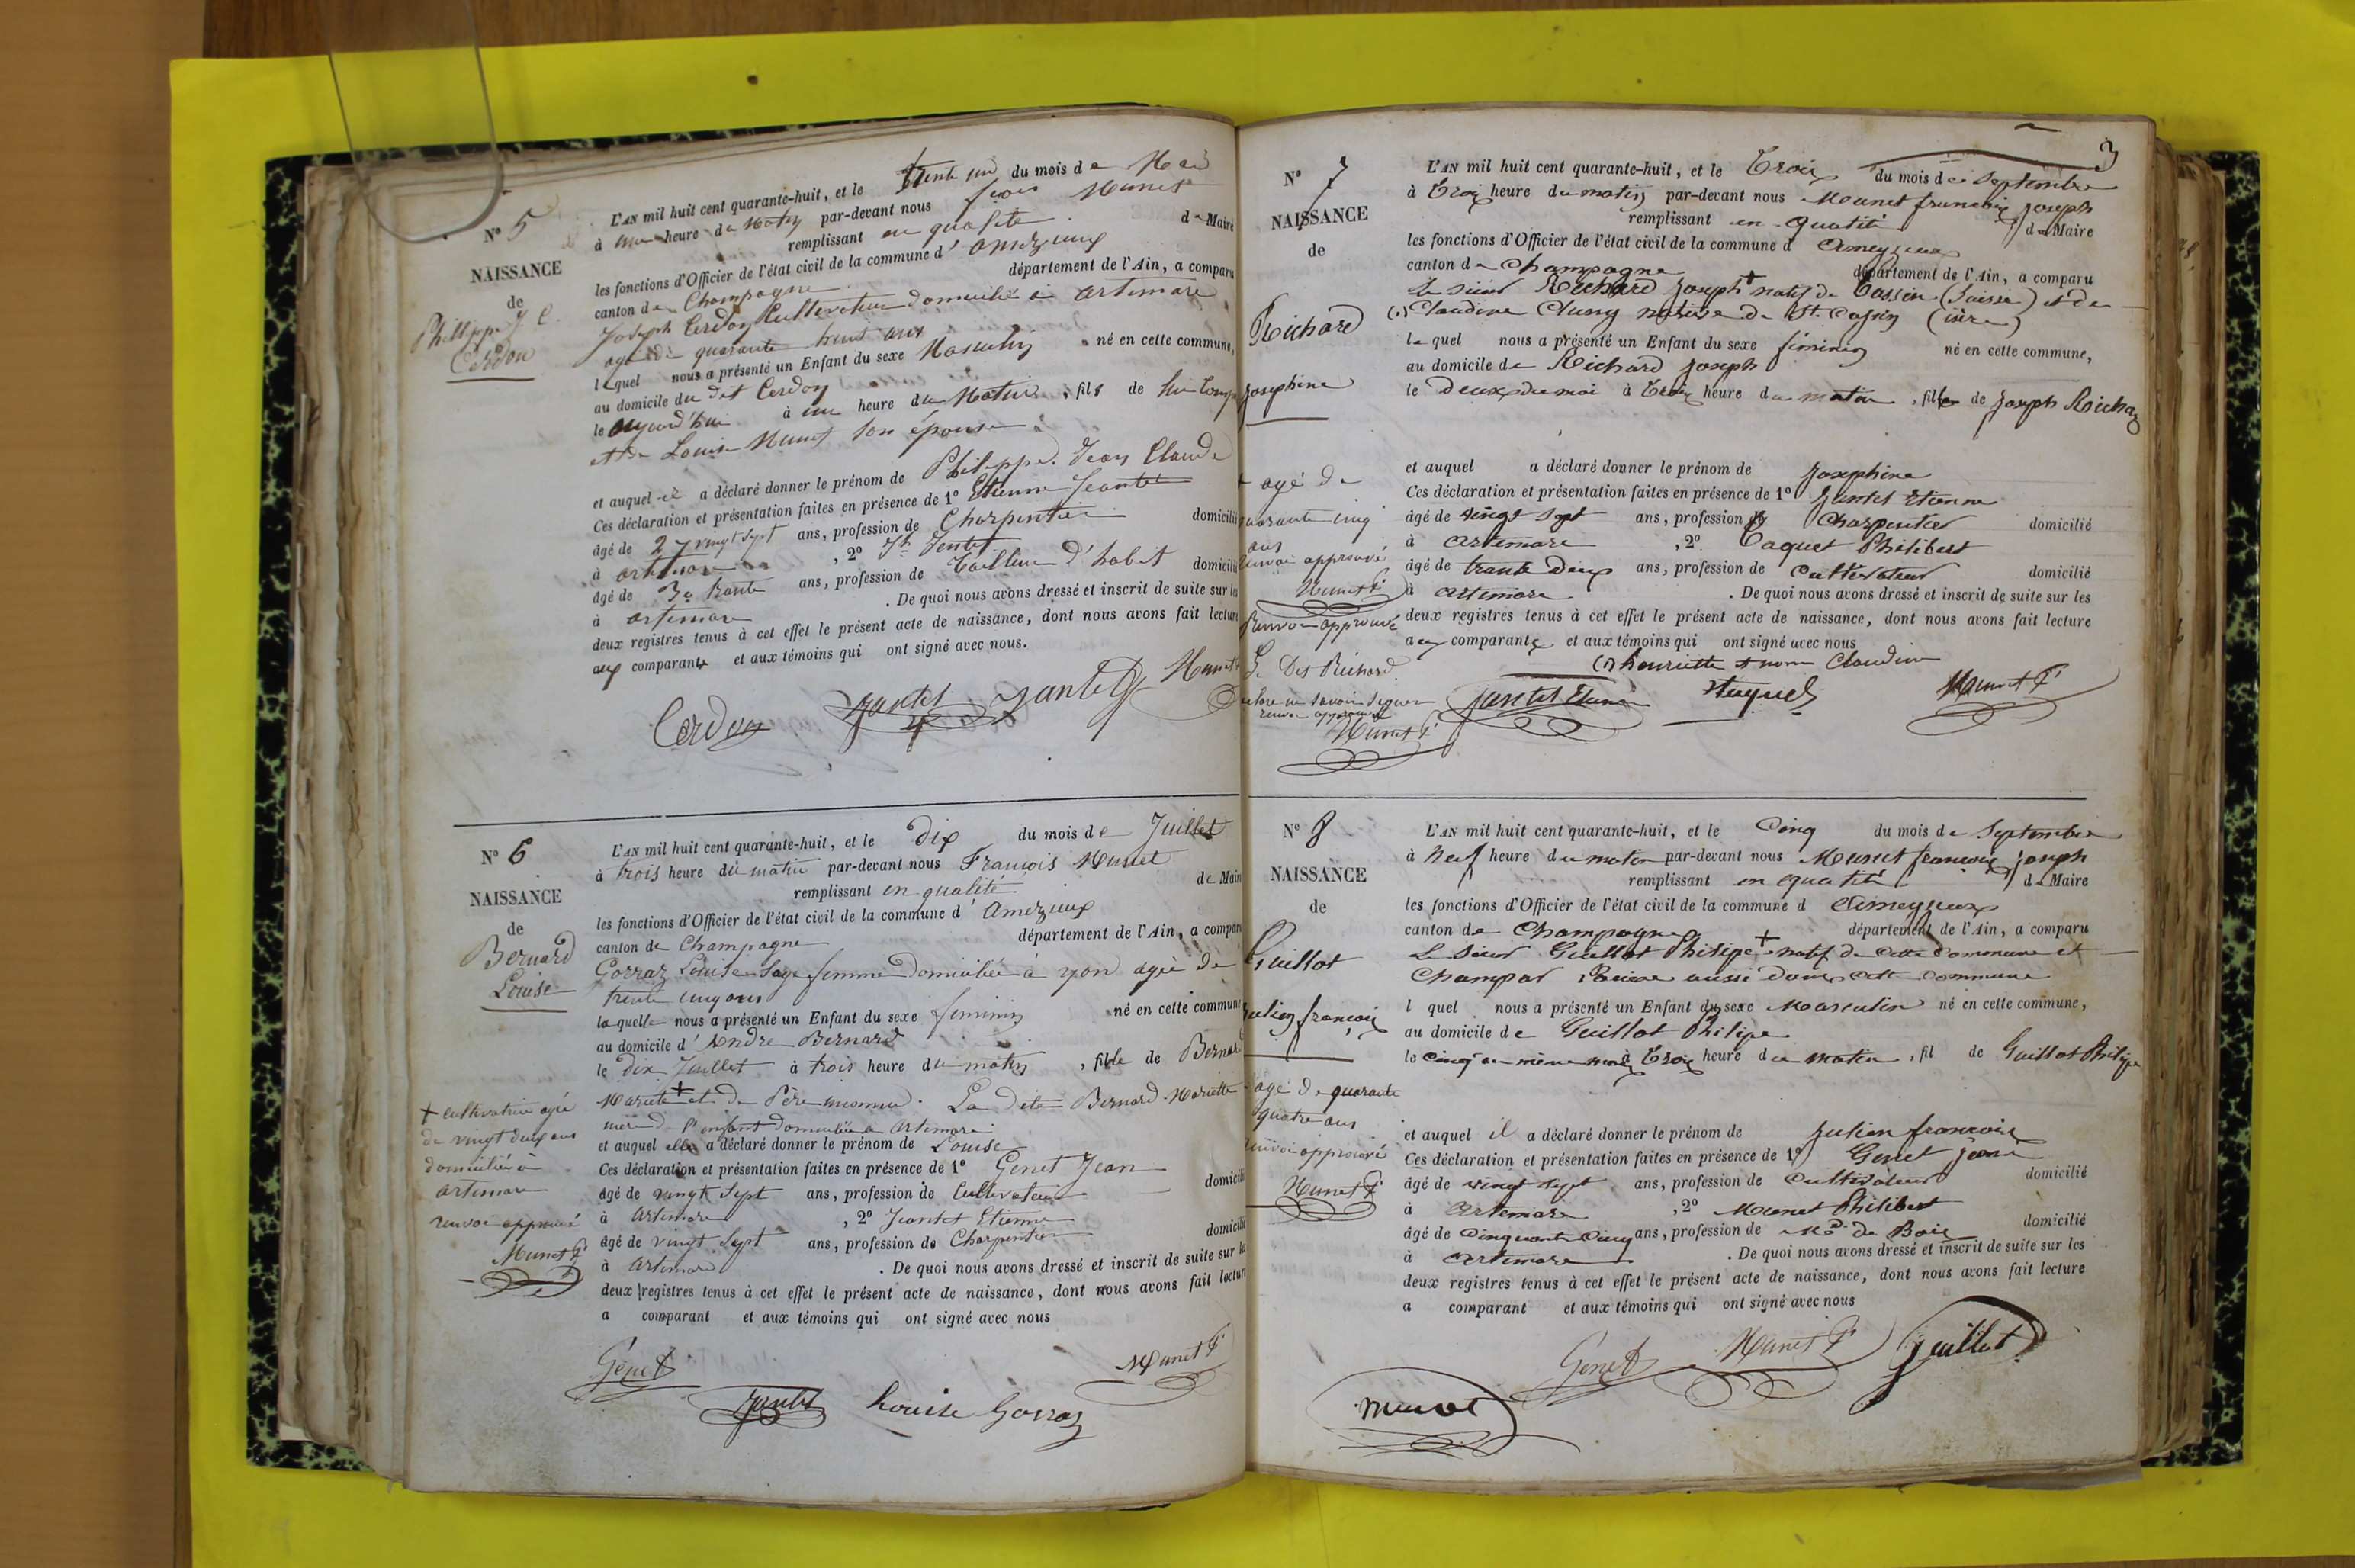 N° 5
NAISSANCE
de
Philippe J C.
Cerdon
L'AN mil huit cent quarante-huit, et le trente un du mois de Mai
à une heure du Matin par-devant nous fois Munet
remplissant en qualité de Maire
les fonctions d'Officier de l'état civil de la commune d'Amezieux
canton de Champagne département de l'Ain, a comparu
Joseph Cerdon Cultivateur domicilié à Artemare
agé de quarante huit ans
lequel nous a présenté un Enfant du sexe Masculin né en cette commune,
au domicile du dit Cerdon
le aujourd'hui à une heure du Matin, fils de
et de Louise Munet son épouse
et auquel il a déclaré donner le prénom de Philippe Jean Claude
Ces déclaration et présentation faites en présence de 1° Etienne Jeantet
âgé de 27 vingt sept ans, profession de Charpentier domicilié
à artemare, 2° Jh Jentet
âgé de 30 trente ans, profession de Tailleur d'habit domicilié
à artemare. De quoi nous avons dressé et inscrit de suite sur les
deux registres tenus à cet effet le présent acte de naissance, dont nous avons fait lecture
aux comparants et aux témoins qui ont signé avec nous.
Cerdon Jantet Jantet Munet
N° 6
NAISSANCE
de
Bernard
Louise
L'AN mil huit cent quarante-huit, et le Dix du mois de Juillet
à trois heure du matin par-devant nous François Munet
remplissant en qualité de Maire
les fonctions d'Officier de l'état civil de la commune d'Amezieux
canton de Champagne département de l'Ain, a comparu
Gorraz Louise Sage femme Domiciliée à yon agée de
trente cinq ans
laquelle nous a présenté un Enfant du sexe feminin né en cette commune
au domicile d'Andre Bernard
le Dix Juillet à trois heure du matin, fille de Bernard
Mariette + et de Père inconnu. La dite Bernard Mariette
mère de l'enfant Domiciliée a Artemare
et auquel elle a déclaré donner le prénom de Louise
Ces déclaration et présentation faites en présence de 1° Genet Jean
âgé de vingt sept ans, profession de Cultivateur domicilié
à Artemare, 2° Jeantet Etienne
âgé de vingt sept ans, profession de Charpentier domicilié
à Artemare. De quoi nous avons dressé et inscrit de suite sur les
deux registres tenus à cet effet le présent acte de naissance, dont nous avons fait lecture
a comparant et aux témoins qui ont signé avec nous
+ cultivatrice agée
de vingt deux ans
domiciliée à
artemare
renvoi approuvé
Munet F
Genet Munet F
Jantet Louise Gorraz
3
N° 7
NAISSANCE
de
Richard
Josephine
L'AN mil huit cent quarante-huit, et le Trois du mois de Septembre
à Trois heure du matin par-devant nous Munet françois joseph
remplissant en qualité de Maire
les fonctions d'Officier de l'état civil de la commune d Ameyzieux
canton de Champagne département de l'Ain, a comparu
le sieur Richard Joseph + natif de Cossin (Suisse) et de
(1) Claudine Cluny native de St. Cassin (isère)
lequel nous a présenté un Enfant du sexe féminin né en cette commune,
au domicile de Richard Joseph
le Deux du moi à Trois heure du matin, fille de Joseph Richard
et auquel a déclaré donner le prénom de Josephine
Ces déclaration et présentation faites en présence de 1° Jantet Etienne
âgé de vingt sept ans, profession de Charpentier domicilié
à Artemare, 2° Taquet Philibert
âgé de trante Deux ans, profession de Cultivateur domicilié
à Artemare. De quoi nous avons dressé et inscrit de suite sur les
deux registres tenus à cet effet le présent acte de naissance, dont nous avons fait lecture
aux comparants et aux témoins qui ont signé avec nous
(1) henriette et non Claudine
+ agé de
quarante cinq
ans
renvoi approuvé
Munet F
Renvoi approuvé
Richard
declare ne savoir signer
renvoi approuvé
Munet F
Jantet Etienne Taquet Munet F
N° 8
NAISSANCE
de
Guillot
Julien françois
L'AN mil huit cent quarante-huit, et le Cinq du mois de Septembre
à Neuf heure du matin par-devant nous Munet françois joseph
remplissant en qualité de Maire
les fonctions d'Officier de l'état civil de la commune d Ameyzieux
canton de Champagne département de l'Ain, a comparu
Le Sieur Guillot Philipe + natif de cette commune et
aussi dans cette commune
l quel nous a présenté un Enfant du sexe Masculin né en cette commune,
au domicile de Guillot Philipe
le cinq du même mois à Trois heure du matin, fil de Guillot Philipe
et auquel il a déclaré donner le prénom de Julien françois
Ces déclaration et présentation faites en présence de 1° Genet jean
âgé de vingt sept ans, profession de Cultivateur domicilié
à Artemare, 2° Munet Philibert
âgé de Cinquante Cinq ans, profession de Md de Bois domicilié
à Artemare. De quoi nous avons dressé et inscrit de suite sur les
deux registres tenus à cet effet le présent acte de naissance, dont nous avons fait lecture
a comparant et aux témoins qui ont signé avec nous
agé de quarante
quatre ans
renvoi approuvé
Munet F
Genet Munet F Guillot
Munet